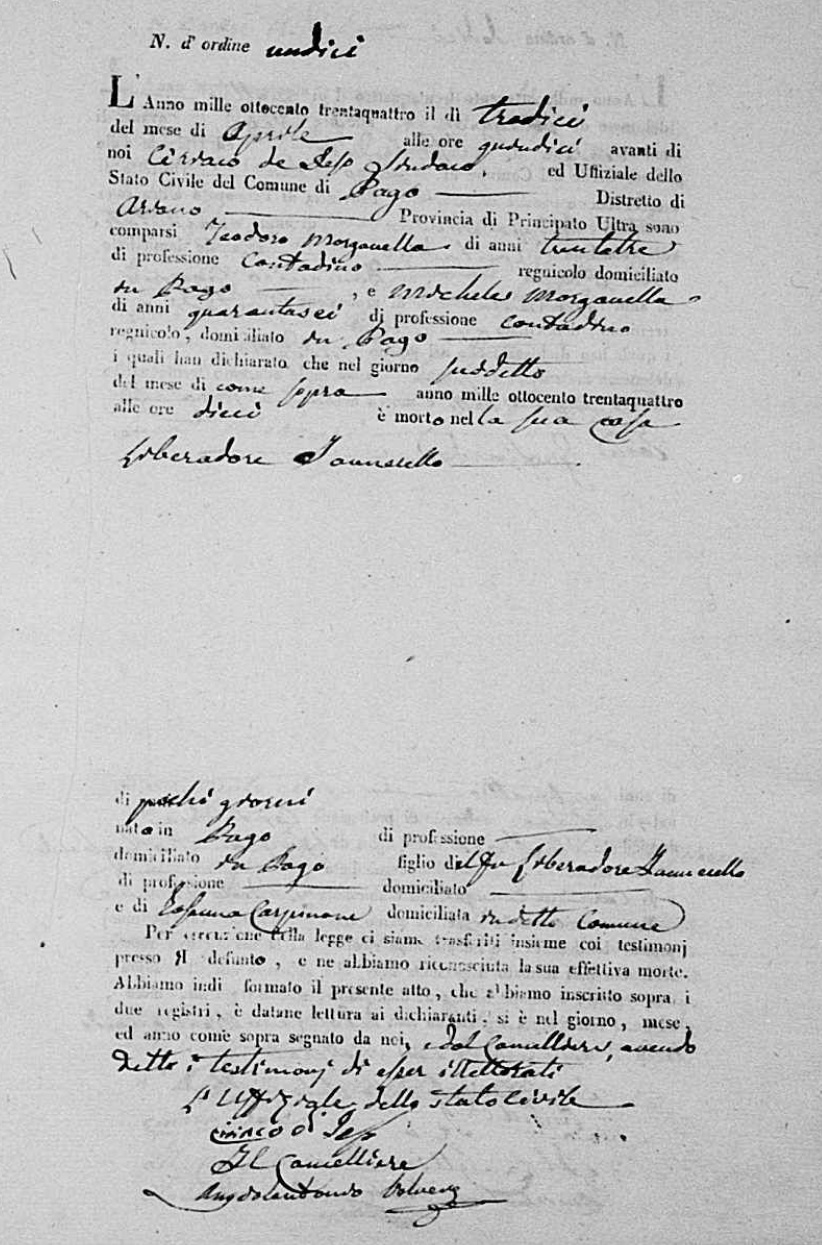 N. d' ordine undici
L' Anno mille ottocento trentaquattro il dì tredici
del mese di Aprile alle ore quindici avanti di
noi Ciriaco de Sindaco, ed Uffiziale dello
Stato Civile del Comune di Pago Distretto di
Ariano Provincia di Principato Ultra sono
comparsi Teodoro Morganella di anni trentatre
di professione Contadino regnicolo domiciliato
in Pago , e Michele Morganella
di anni quarantasei di professione contadino
regnicolo, domiciliato in Pago
i quali han dichiarato che nel giorno suddetto
del mese di come sopra anno mille ottocento trentaquattro
alle ore dieci è morto nella sua casa
Liberadore Iannarello
di pochi giorni
nato in Pago di professione
domiciliato in Pago figlio del fu Liberadore
di professione domiciliato
e di Carpinone domiciliata in detto Comune
Per esecuzione della legge ci siamo trasferiti insieme coi testimonj
presso il defunto, e ne abbiamo riconosciuta la sua effettiva morte.
Abbiamo indi formato il presente atto, che abbiamo inscritto sopra i
due registri, è datane lettura ai dichiaranti, si è nel giorno, mese,
ed anno come sopra segnato da noi, e dal Cancelliere, avendo
detto i testimonj di esser illetterati
L'Uffiziale dello stato civile
Ciriaco
Il Cancelliere